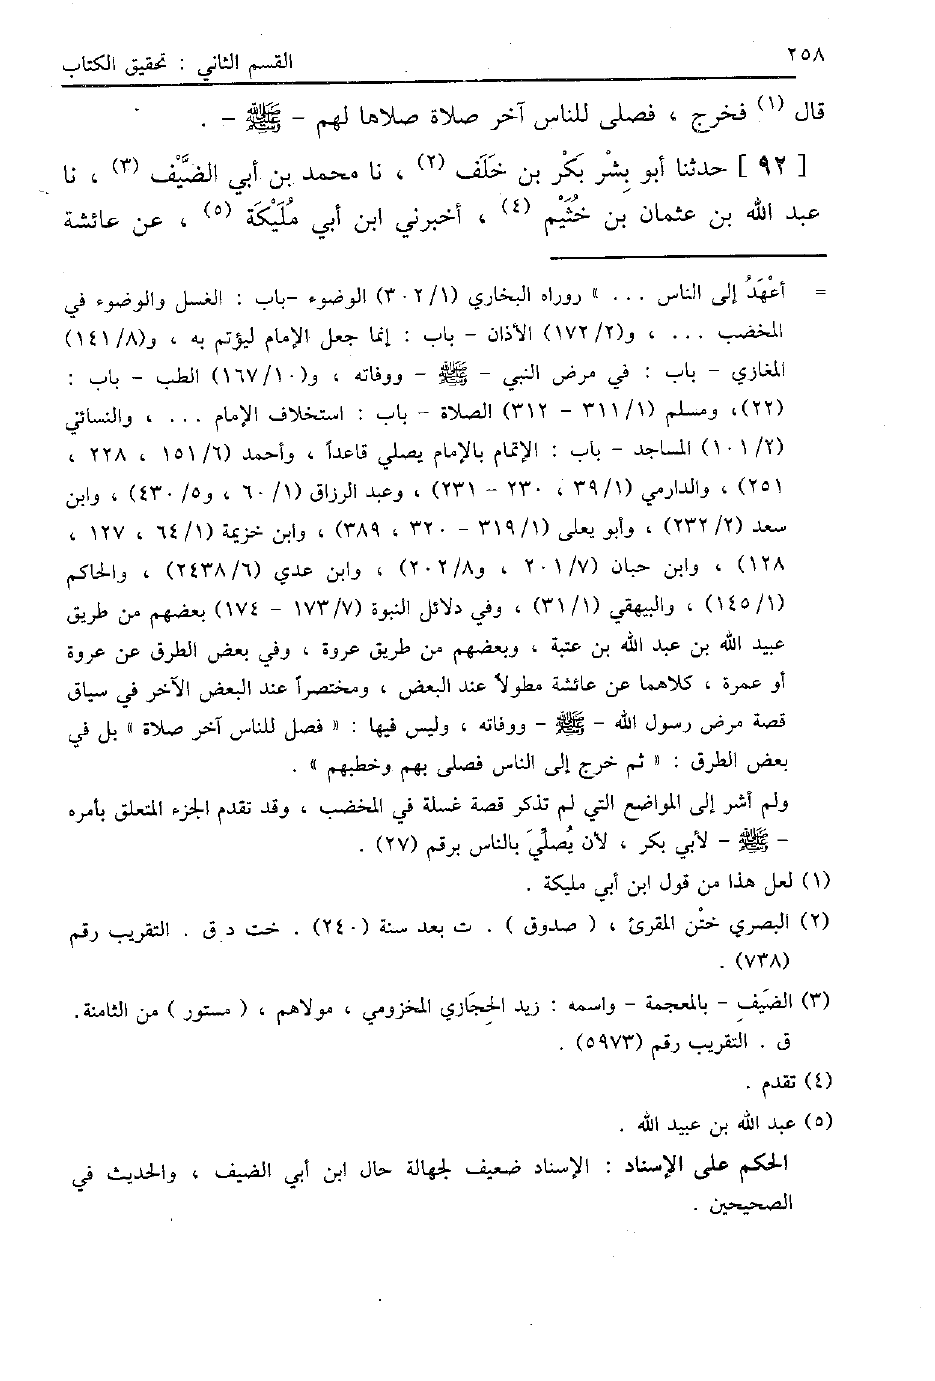 ٢٥٨
القسم الثاني : تحقيق الكتاب
قال (١) فخرج ، فصلى للناس آخر صلاة صلاها لهم – ﷺ – .
[ ٩٢ ] حدثنا أبو بِشْر بَكْر بن خَلَف (٢) ، نا محمد بن أبي الضَّيْف (٣) ، نا
عبد الله بن عثمان بن خُثَيْم (٤) ، أخبرني ابن أبي مُلَيْكَة (٥) ، عن عائشة
= أعْهَدُ إلى الناس ... » روراه البخاري (٣٠٢/١) الوضوء –باب : الغسل والوضوء في
المخضب ... ، و(١٧٢/٢) الأذان – باب : إنما جعل الإمام ليؤتم به ، و(١٤١/٨)
المغازي – باب : في مرض النبي – ﷺ – ووفاته ، و(١٦٧/١٠) الطب – باب :
(٢٢)، ومسلم (٣١١/١ – ٣١٢) الصلاة – باب : استخلاف الإمام ... ، والنسائي
(١٠١/٢) المساجد – باب : الإتمام بالإمام يصلي قاعداً ، وأحمد (١٥١/٦ ، ٢٢٨ ،
٢٥١) ، والدارمي (٣٩/١ ، ٢٣٠ – ٢٣١) ، وعبد الرزاق (٦٠/١ ، و٤٣٠/٥) ، وابن
سعد (٢٣٢/٢) ، وأبو يعلى (٣١٩/١ – ٣٢٠ ، ٣٨٩) ، وابن خزيمة (٦٤/١ ، ١٢٧ ،
١٢٨) ، وابن حبان (٢٠١/٧ ، و٢٠٢/٨) ، وابن عدي (٢٤٣٨/٦) ، والحاكم
(١٤٥/١) ، والبيهقي (٣١/١) ، وفي دلائل النبوة (١٧٣/٧ – ١٧٤) بعضهم من طريق
عبيد الله بن عبد الله بن عتبة ، وبعضهم من طريق عروة ، وفي بعض الطرق عن عروة
أو عمرة ، كلاهما عن عائشة مطولاً عند البعض ، ومختصراً عند البعض الآخر في سياق
قصة مرض رسول الله – ﷺ – ووفاته ، وليس فيها : « فصل للناس آخر صلاة » بل في
بعض الطرق : « ثم خرج إلى الناس فصلى بهم وخطبهم » .
ولم أشر إلى المواضع التي لم تذكر قصة غسلة في المخضب ، وقد تقدم الجزء المتعلق بأمره
– ﷺ – لأبي بكر ، لأن يُصلِّيَ بالناس برقم (٢٧) .
(١) لعل هذا من قول ابن أبي مليكة .
(٢) البصري ختْن المقرئ ، ( صدوق ) . ت بعد سنة (٢٤٠) . خت د ق . التقريب رقم
(٧٣٨) .
(٣) الضَيفِ – بالمعجمة – واسمه : زيد الحِجَازي المخزومي ، مولاهم ، ( مستور ) من الثامنة.
ق . التقريب رقم (٥٩٧٣) .
(٤) تقدم .
(٥) عبد الله بن عبيد الله .
الحكم على الإسناد : الإسناد ضعيف لجهالة حال ابن أبي الضيف ، والحديث في
الصحيحين .